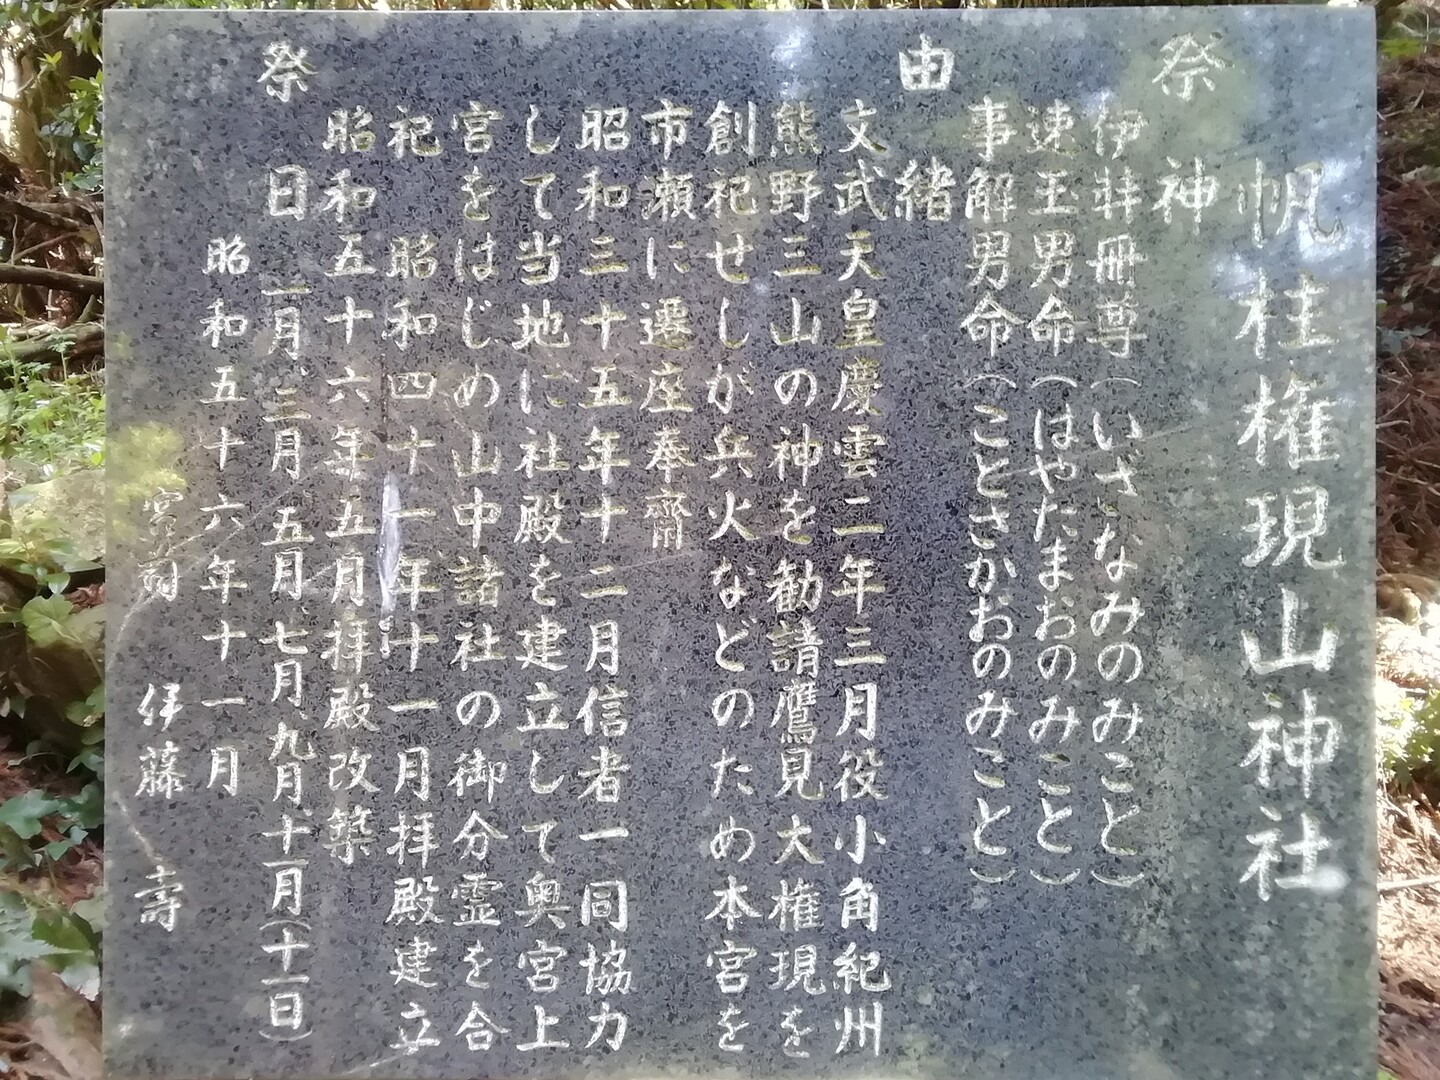 帆柱権現山神社
祭神
伊弉冊尊(いざなみのみこと)
速玉男命(はやたまおのみこと)
事解男命(ことさかおのみこと)
由緒
文武天皇慶雲二年三月役小角紀州
熊野三山の神を勧請鷹見大権現を
創祀せしが兵火などのため本宮を
市瀬に遷座奉齋
昭和三十五年十二月信者一同協力
して当地に社殿を建立して奥宮上
宮をはじめ山中諸社の御分霊を合
祀 昭和四十一年十一月拝殿建立
昭和五十六年五月拝殿改築
祭日 一月、三月、五月、七月、九月、十一月(十一日)
昭和五十六年十一月
宮司 伊藤壽